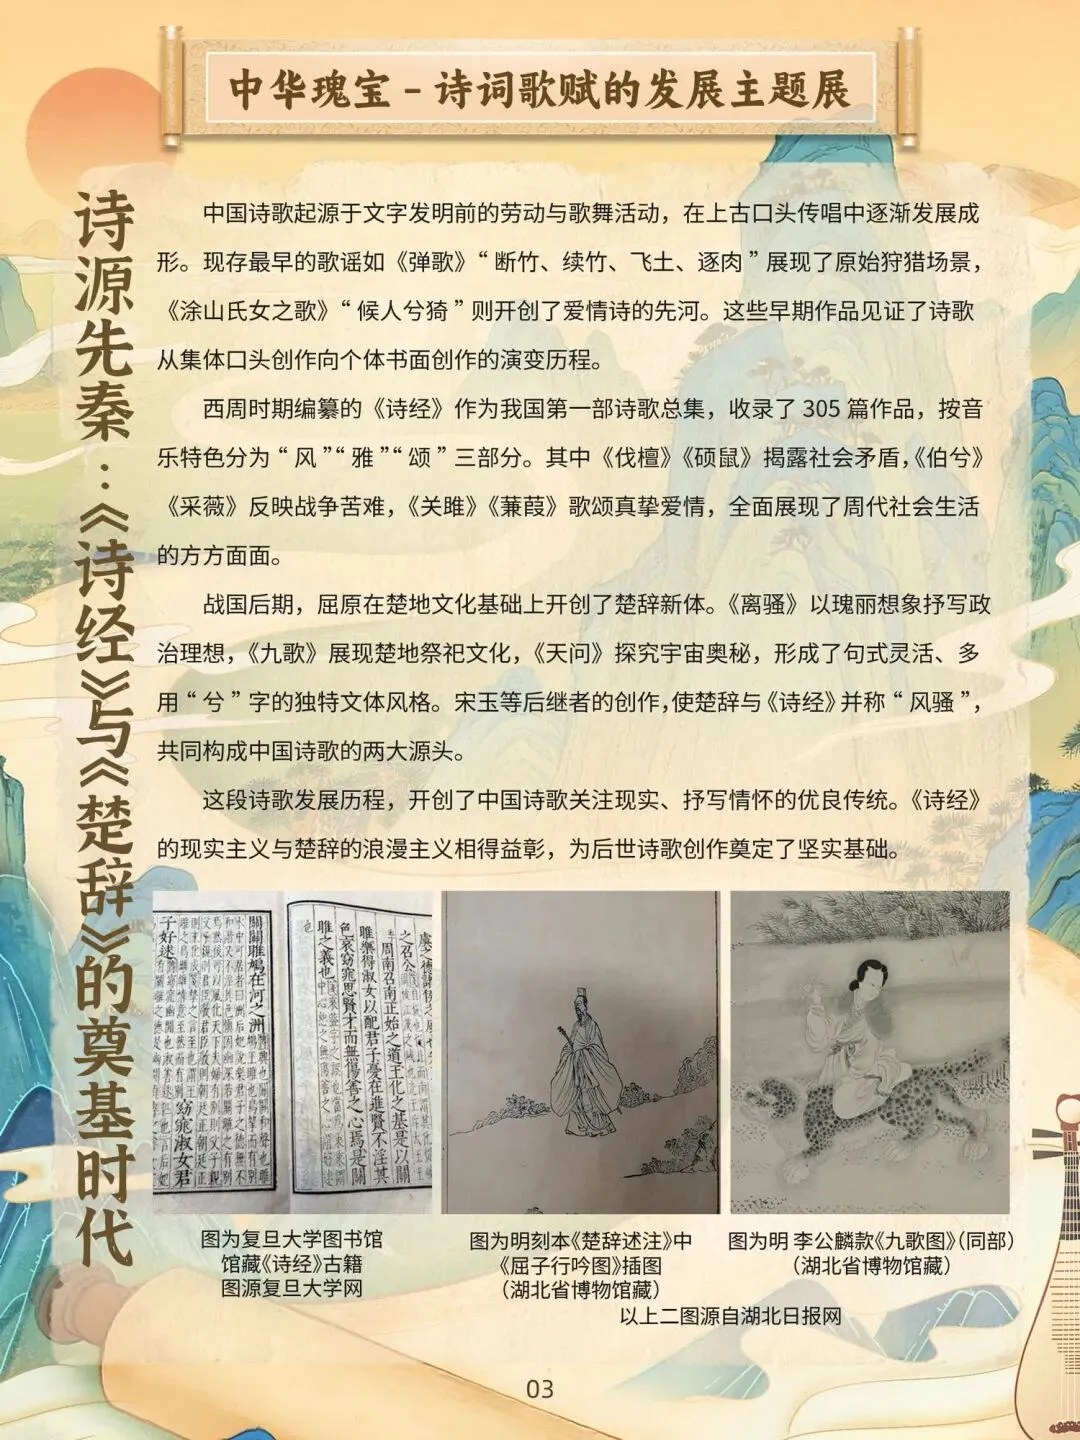 中华瑰宝-诗词歌赋的发展主题展
诗源先秦：《诗经》与《楚辞》的奠基时代
中国诗歌起源于文字发明前的劳动与歌舞活动，在上古口头传唱中逐渐发展成
形。现存最早的歌谣如《弹歌》“断竹、续竹、飞土、逐肉”展现了原始狩猎场景，
《涂山氏女之歌》“候人兮猗”则开创了爱情诗的先河。这些早期作品见证了诗歌
从集体口头创作向个体书面创作的演变历程。
西周时期编纂的《诗经》作为我国第一部诗歌总集，收录了305篇作品，按音
乐特色分为“风”“雅”“颂”三部分。其中《伐檀》《硕鼠》揭露社会矛盾，《伯兮》
《采薇》反映战争苦难，《关雎》《蒹葭》歌颂真挚爱情，全面展现了周代社会生活
的方方面面。
战国后期，屈原在楚地文化基础上开创了楚辞新体。《离骚》以瑰丽想象抒写政
治理想，《九歌》展现楚地祭祀文化，《天问》探究宇宙奥秘，形成了句式灵活、多
用“兮”字的独特文体风格。宋玉等后继者的创作，使楚辞与《诗经》并称“风骚”，
共同构成中国诗歌的两大源头。
这段诗歌发展历程，开创了中国诗歌关注现实、抒写情怀的优良传统。《诗经》
的现实主义与楚辞的浪漫主义相得益彰，为后世诗歌创作奠定了坚实基础。
之召公
周南召南正始之道王化之基是以關
雎樂得淑女以配君子憂在進賢不淫其
色哀窈窕思賢才而無傷善之心焉是關
雎之義也
關關雎鳩在河之洲
窈窕淑女君
子好逑
图为复旦大学图书馆
馆藏《诗经》古籍
图源复旦大学网
图为明刻本《楚辞述注》中
《屈子行吟图》插图
（湖北省博物馆藏）
图为明 李公麟款《九歌图》（同部）
（湖北省博物馆藏）
以上二图源自湖北日报网
03